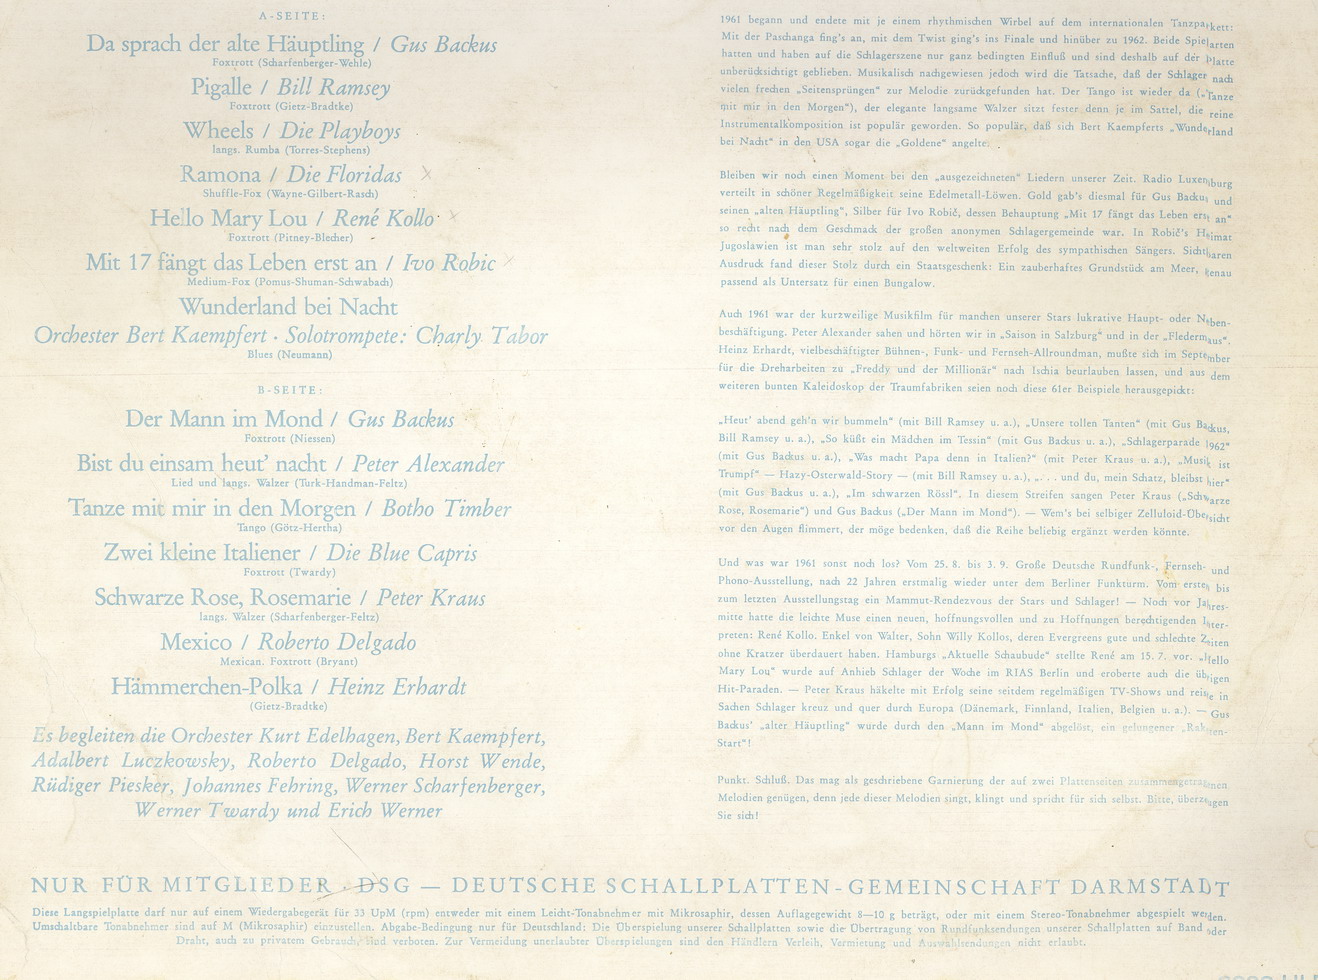 A-SEITE:
Da sprach der alte Häuptling / Gus Backus
Foxtrott (Scharfenberger-Wehle)
Pigalle / Bill Ramsey
Foxtrott (Gietz-Bradtke)
Wheels / Die Playboys
langs. Rumba (Torres-Stephens)
Ramona / Die Floridas
Shuffle-Fox (Wayne-Gilbert-Rasch)
Hello Mary Lou / René Kollo
Foxtrott (Pitney-Blecher)
Mit 17 fängt das Leben erst an / Ivo Robic
Medium-Fox (Pomus-Shuman-Schwabach)
Wunderland bei Nacht
Orchester Bert Kaempfert · Solotrompete: Charly Tabor
Blues (Neumann)
B-SEITE:
Der Mann im Mond / Gus Backus
Foxtrott (Niessen)
Bist du einsam heut' nacht / Peter Alexander
Lied und langs. Walzer (Turk-Handman-Feltz)
Tanze mit mir in den Morgen / Botho Timber
Tango (Götz-Hertha)
Zwei kleine Italiener / Die Blue Capris
Foxtrott (Twardy)
Schwarze Rose, Rosemarie / Peter Kraus
langs. Walzer (Scharfenberger-Feltz)
Mexico / Roberto Delgado
Mexican. Foxtrott (Bryant)
Hämmerchen-Polka / Heinz Erhardt
(Gietz-Bradtke)
Es begleiten die Orchester Kurt Edelhagen, Bert Kaempfert,
Adalbert Luczkowsky, Roberto Delgado, Horst Wende,
Rüdiger Piesker, Johannes Fehring, Werner Scharfenberger,
Werner Twardy und Erich Werner
1961 begann und endete mit je einem rhythmischen Wirbel auf dem internationalen Tanzparkett:
Mit der Paschanga fing's an, mit dem Twist ging's ins Finale und hinüber zu 1962. Beide Spielarten
hatten und haben auf die Schlagerszene nur ganz bedingten Einfluß und sind deshalb auf der Platte
unberücksichtigt geblieben. Musikalisch nachgewiesen jedoch wird die Tatsache, daß der Schlager nach
vielen frechen „Seitensprüngen“ zur Melodie zurückgefunden hat. Der Tango ist wieder da („Tanze
mit mir in den Morgen“), der elegante langsame Walzer sitzt fester denn je im Sattel, die reine
Instrumentalkomposition ist populär geworden. So populär, daß sich Bert Kaempferts „Wunderland
bei Nacht“ in den USA sogar die „Goldene“ angelte.
Bleiben wir noch einen Moment bei den „ausgezeichneten“ Liedern unserer Zeit. Radio Luxemburg
verteilt in schöner Regelmäßigkeit seine Edelmetall-Löwen. Gold gab's diesmal für Gus Backus und
seinen „alten Häuptling“, Silber für Ivo Robič, dessen Behauptung „Mit 17 fängt das Leben erst an“
so recht nach dem Geschmack der großen anonymen Schlagergemeinde war. In Robič's Heimat
Jugoslawien ist man sehr stolz auf den weltweiten Erfolg des sympathischen Sängers. Sichtbaren
Ausdruck fand dieser Stolz durch ein Staatsgeschenk: Ein zauberhaftes Grundstück am Meer, genau
passend als Untersatz für einen Bungalow.
Auch 1961 war der kurzweilige Musikfilm für manchen unserer Stars lukrative Haupt- oder Neben-
beschäftigung. Peter Alexander sahen und hörten wir in „Saison in Salzburg“ und in der „Fledermaus“.
Heinz Erhardt, vielbeschäftigter Bühnen-, Funk- und Fernseh-Allroundman, mußte sich im September
für die Dreharbeiten zu „Freddy und der Millionär“ nach Ischia beurlauben lassen, und aus dem
weiteren bunten Kaleidoskop der Traumfabriken seien noch diese 61er Beispiele herausgepickt:
„Heut' abend geh'n wir bummeln“ (mit Bill Ramsey u. a.), „Unsere tollen Tanten“ (mit Gus Backus,
Bill Ramsey u. a.), „So küßt ein Mädchen im Tessin“ (mit Gus Backus u. a.), „Schlagerparade 1962“
(mit Gus Backus u. a.), „Was macht Papa denn in Italien?“ (mit Peter Kraus u. a.), „Musik ist
Trumpf“ — Hazy-Osterwald-Story — (mit Bill Ramsey u. a.), „. . . und du, mein Schatz, bleibst hier“
(mit Gus Backus u. a.), „Im schwarzen Rössl“. In diesem Streifen sangen Peter Kraus („Schwarze
Rose, Rosemarie“) und Gus Backus („Der Mann im Mond“). — Wem's bei selbiger Zelluloid-Übersicht
vor den Augen flimmert, der möge bedenken, daß die Reihe beliebig ergänzt werden könnte.
Und was war 1961 sonst noch los? Vom 25. 8. bis 3. 9. Große Deutsche Rundfunk-, Fernseh- und
Phono-Ausstellung, nach 22 Jahren erstmalig wieder unter dem Berliner Funkturm. Vom ersten bis
zum letzten Ausstellungstag ein Mammut-Rendezvous der Stars und Schlager! — Noch vor Jahres-
mitte hatte die leichte Muse einen neuen, hoffnungsvollen und zu Hoffnungen berechtigenden Inter-
preten: René Kollo. Enkel von Walter, Sohn Willy Kollos, deren Evergreens gute und schlechte Zeiten
ohne Kratzer überdauert haben. Hamburgs „Aktuelle Schaubude“ stellte René am 15. 7. vor. „Hello
Mary Lou“ wurde auf Anhieb Schlager der Woche im RIAS Berlin und eroberte auch die übrigen
Hit-Paraden. — Peter Kraus häkelte mit Erfolg seine seitdem regelmäßigen TV-Shows und reiste in
Sachen Schlager kreuz und quer durch Europa (Dänemark, Finnland, Italien, Belgien u. a.). — Gus
Backus' „alter Häuptling“ wurde durch den „Mann im Mond“ abgelöst, ein gelungener „Raketen-
Start“!
Punkt. Schluß. Das mag als geschriebene Garnierung der auf zwei Plattenseiten zusammengetragenen
Melodien genügen, denn jede dieser Melodien singt, klingt und spricht für sich selbst. Bitte, überzeugen
Sie sich!
NUR FÜR MITGLIEDER · DSG — DEUTSCHE SCHALLPLATTEN-GEMEINSCHAFT DARMSTADT
Diese Langspielplatte darf nur auf einem Wiedergabegerät für 33 UpM (rpm) entweder mit einem Leicht-Tonabnehmer mit Mikrosaphir, dessen Auflagegewicht 8—10 g beträgt, oder mit einem Stereo-Tonabnehmer abgespielt werden.
Umschaltbare Tonabnehmer sind auf M (Mikrosaphir) einzustellen. Abgabe-Bedingung nur für Deutschland: Die Überspielung unserer Schallplatten sowie die Übertragung von Rundfunksendungen unserer Schallplatten auf Band oder
Draht, auch zu privatem Gebrauch, sind verboten. Zur Vermeidung unerlaubter Überspielungen sind den Händlern Verleih, Vermietung und Auswahlsendungen nicht erlaubt.